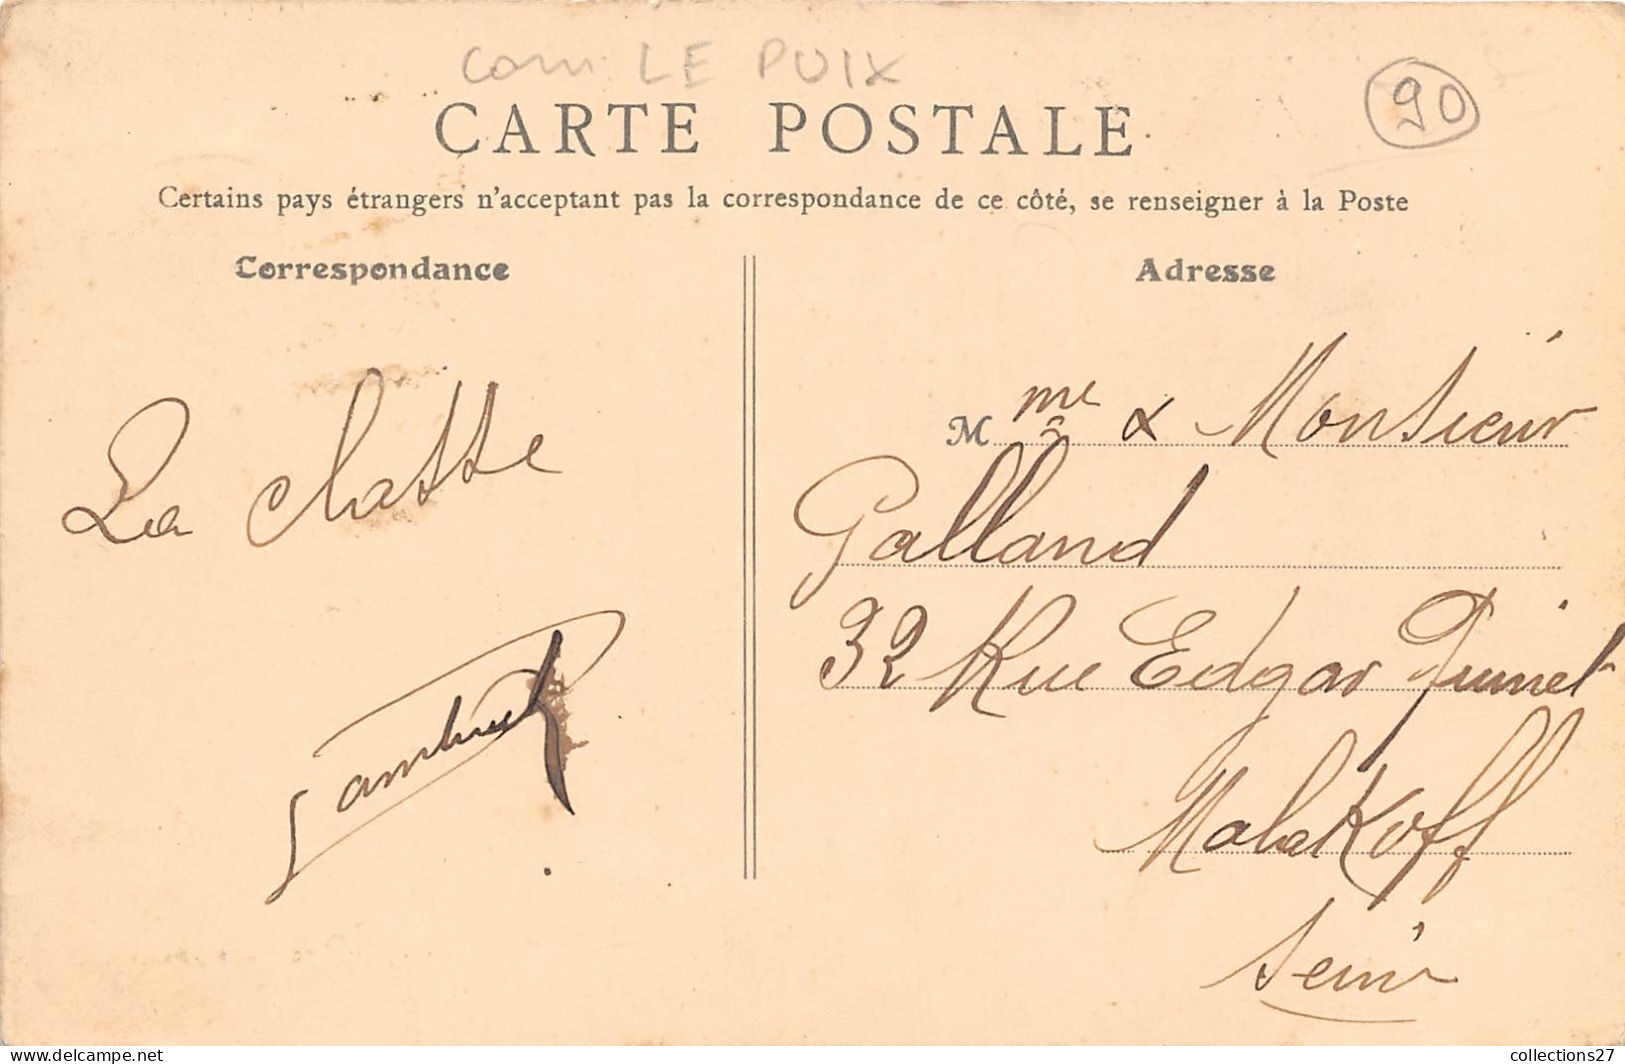 com LE PUIX
90
CARTE POSTALE
Certains pays étrangers n'acceptant pas la correspondance de ce côté, se renseigner à la Poste
Correspondance
La chatte
Adresse
Mme & Monsieur
Galland
32 Rue Edgar Quinet
Malakoff
Seine
www.delcampe.net
collections27